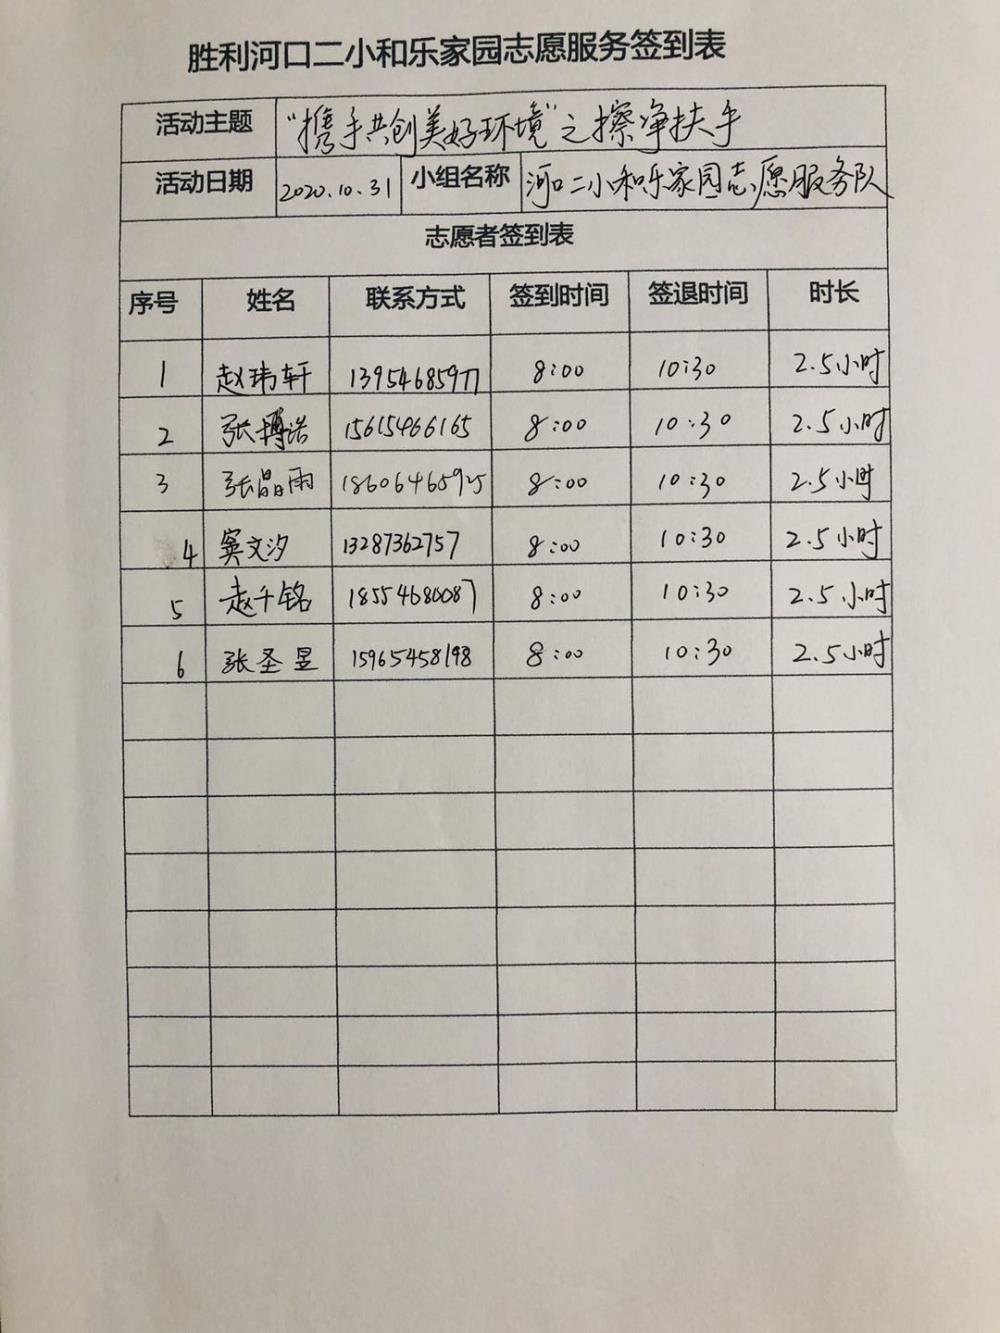 胜利河口二小和乐家园志愿服务签到表
活动主题 “携手共创美好环境”之擦净扶手
活动日期 2020.10.31 小组名称 河口二小和乐家园志愿服务队
志愿者签到表
序号 姓名 联系方式 签到时间 签退时间 时长
1 赵玮轩 13954685977 8:00 10:30 2.5小时
2 张博诺 15615466165 8:00 10:30 2.5小时
3 张晶雨 18606465925 8:00 10:30 2.5小时
4 窦文汐 13287362757 8:00 10:30 2.5小时
5 赵千铭 18554680087 8:00 10:30 2.5小时
6 张圣昱 15965458198 8:00 10:30 2.5小时